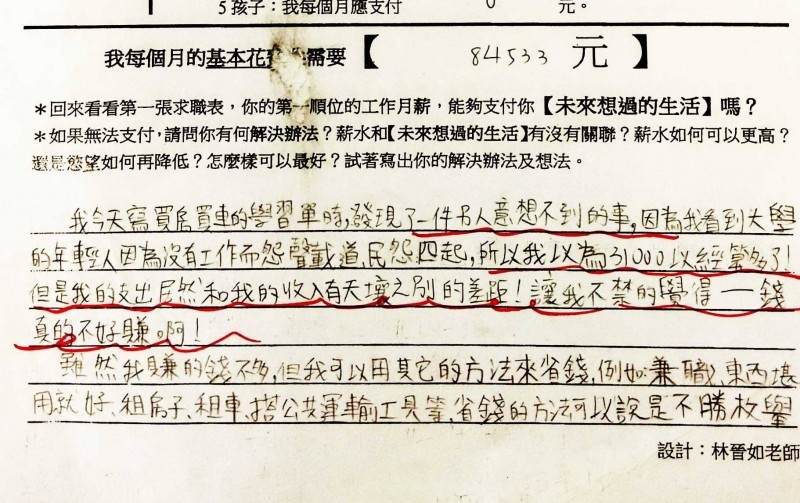 5 孩子：我每個月應支付 0 元。
我每個月的基本花 需要【 84533 元】
＊回來看看第一張求職表，你的第一順位的工作月薪，能夠支付你【未來想過的生活】嗎？
＊如果無法支付，請問你有何解決辦法？薪水和【未來想過的生活】有沒有關聯？薪水如何可以更高？
還是慾望如何再降低？怎麼樣可以最好？試著寫出你的解決辦法及想法。
我今天寫買房買車的學習單時，發現了一件另人意想不到的事，因為我看到大學
的年輕人因為沒有工作而怨聲載道、民怨四起，所以我以為31000以經算多了！
但是我的支出居然和我的收入有天壤之別的差距！讓我不禁的覺得一錢
真的不好賺。啊！
雖然我賺的錢不多，但我可以用其它的方法來省錢，例如兼職、東西堪
用就好、租房子、租車、搭公共運輸工具等，省錢的方法可以說是不勝枚舉
設計：林晉如老師